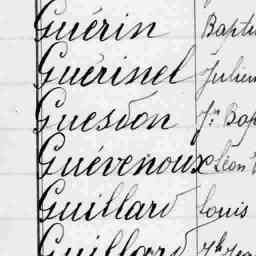 Guérin Bapti
Guérinel Julien
Guesdon Jn Bap
Guévenoux Léon
Guillard Louis
Guillard Jh Jean